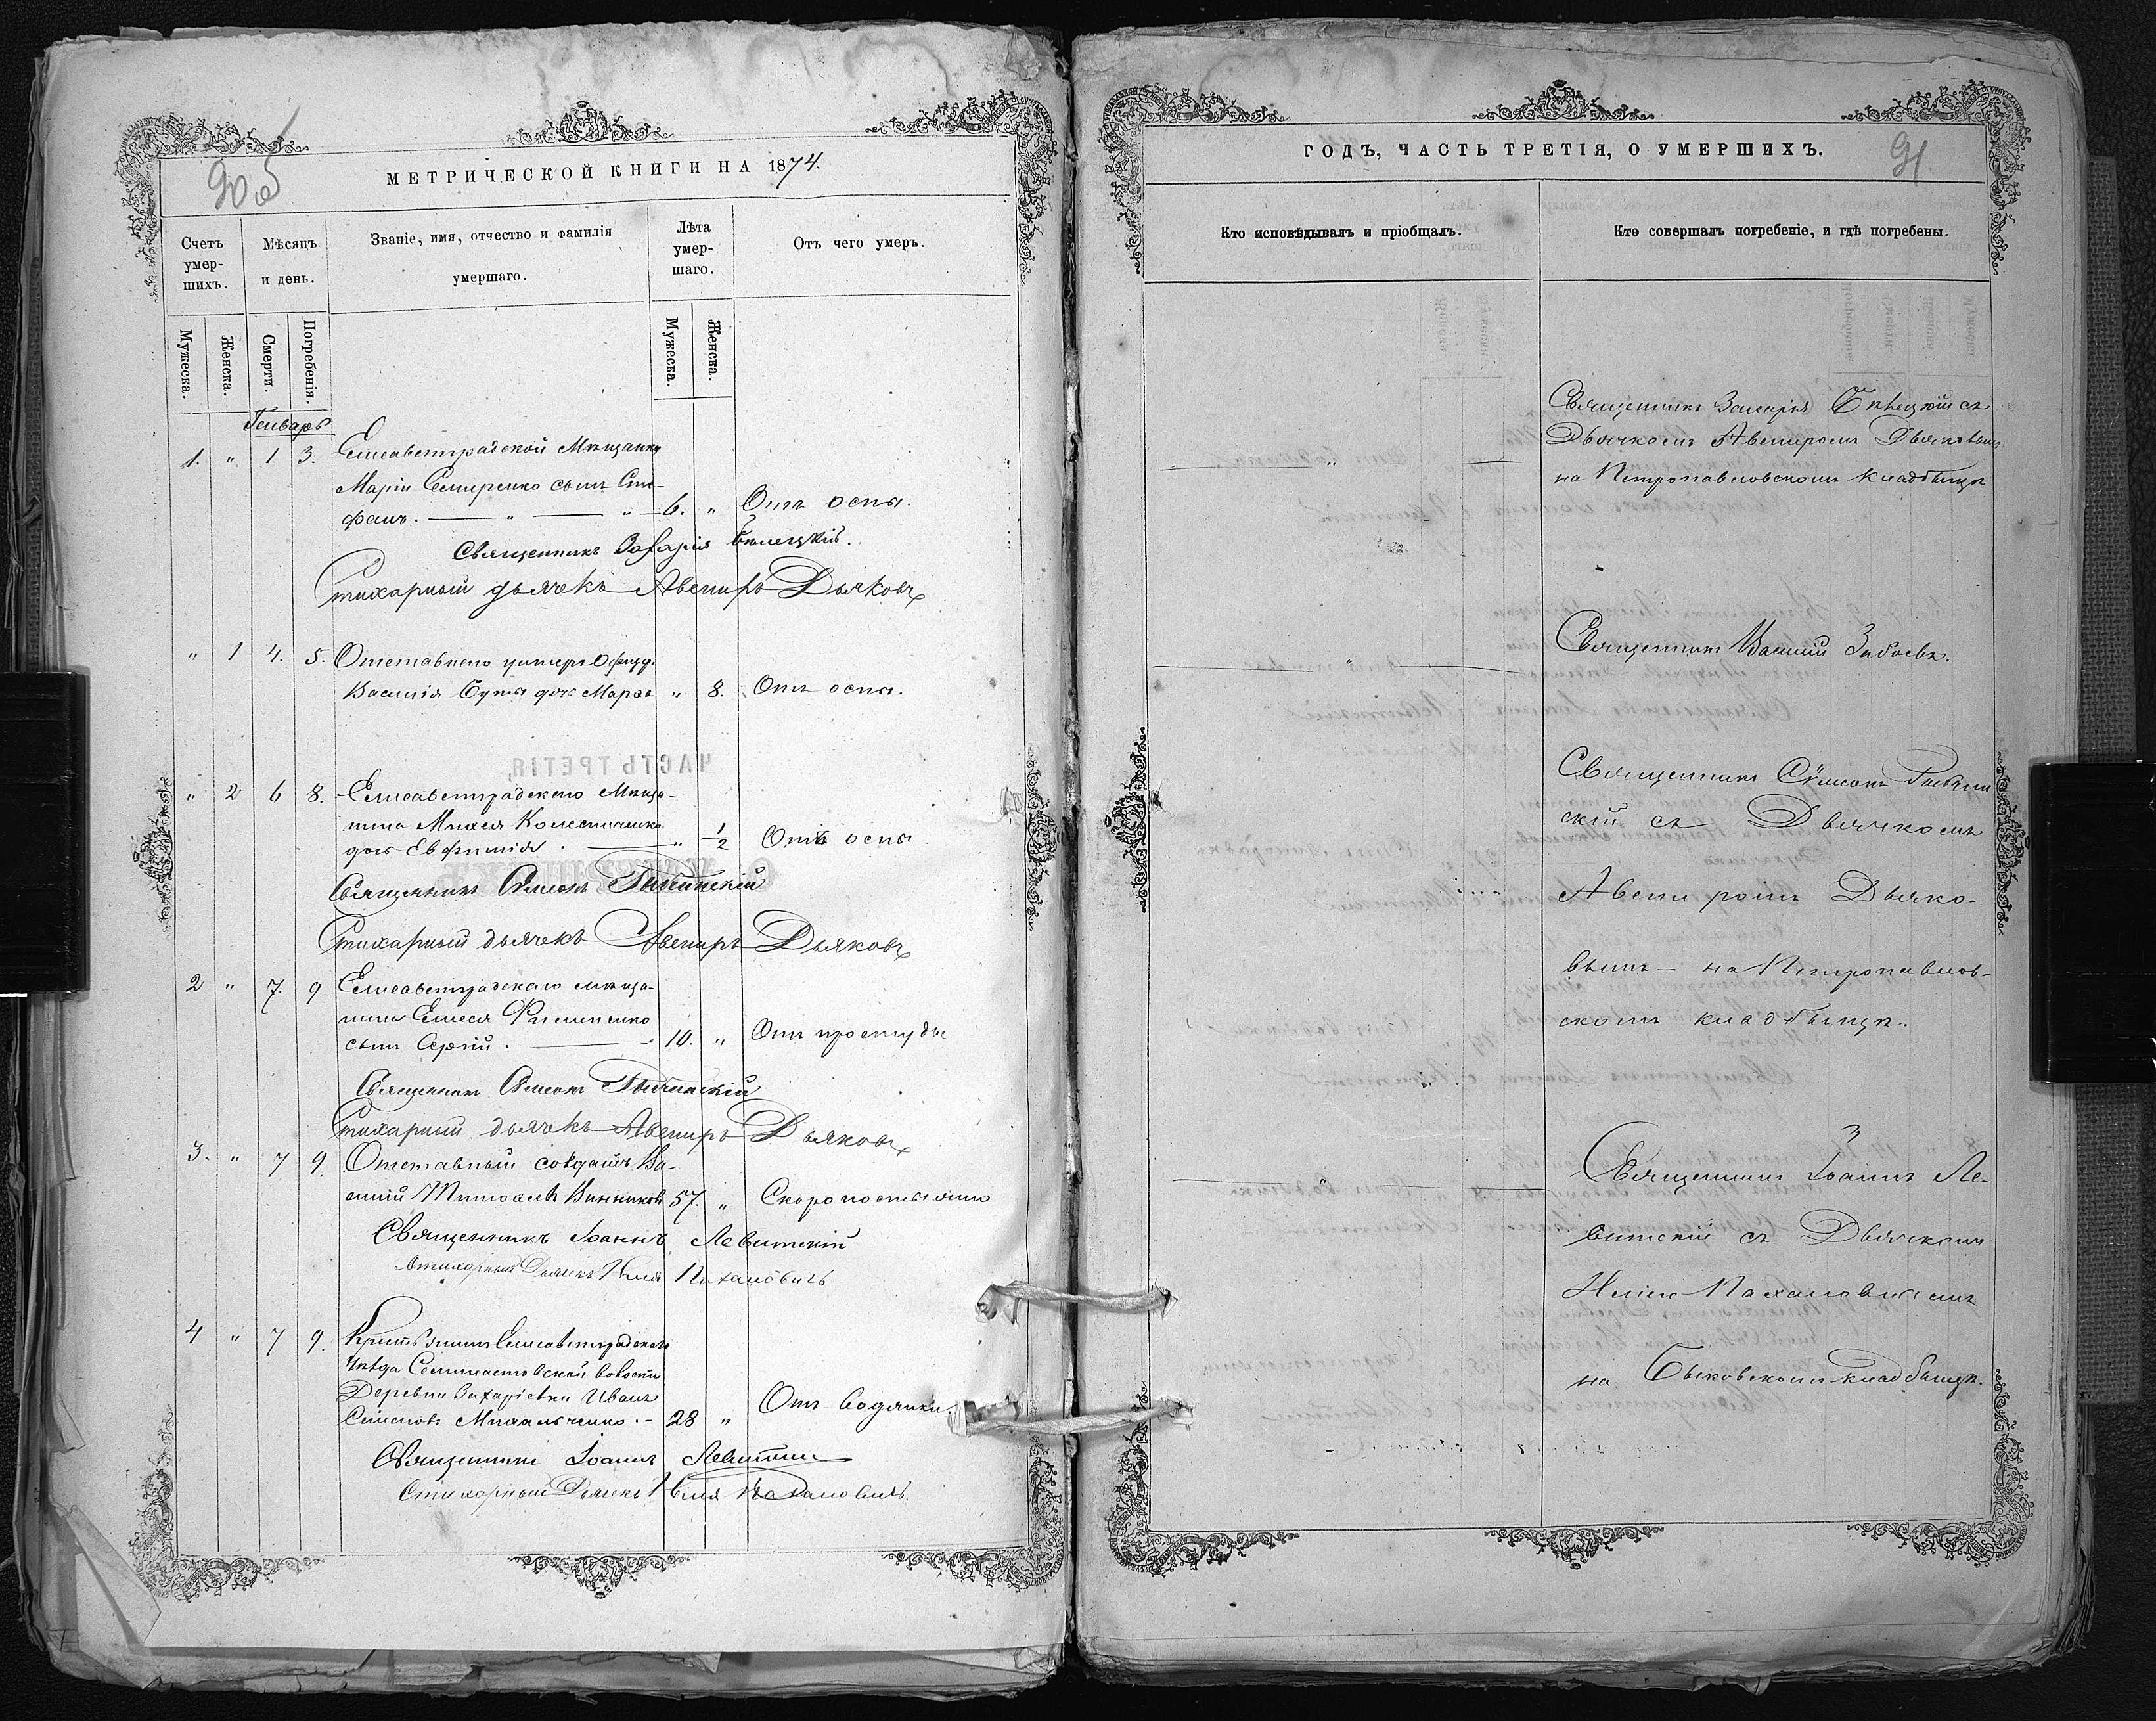 90 об
МЕТРИЧЕСКОЙ КНИГИ НА 1874.
Счетъ умер-шихъ.
Мѣсяцъ и день.
Званіе, имя, отчество и фамилія умершаго.
Лѣта умер-шаго.
Отъ чего умеръ.
Мужеска.
Женска.
Смерти.
Погребенія.
Мужеска.
Женска.
Генварь
1. " 1 3. Елисаветградской Мѣщанки
Маріи Семиренко сынъ Сте-
фанъ. " " 6. " Отъ оспы.
Священникъ Захарія Бѣлецкій.
Стихарный дьячекъ Авениръ Дьяковъ
" 1 4. 5. Отставнаго унтеръ Офиц.
Василія Буты дочь Марѳа " 8. Отъ оспы.
ЧАСТЬ ТРЕТІЯ,
" 2 6 8. Елисаветградскаго Мѣща-
нина Михея Колесниченко
дочь Евфимія. " 1/2 Отъ оспы.
Священникъ Сѵмеонъ
Стихарный дьячекъ Авениръ Дьяковъ
2 " 7. 9 Елисаветградскаго мѣща-
нина Елисея Филипенко
сынъ Сергій. 10. " Отъ простуды
Священникъ Сѵмеонъ
Стихарный дьячекъ Авениръ Дьяковъ
3. " 7 9. Отставный солдатъ Ва-
силій Тимоѳеевъ Винниковъ 57. " Скоропостижно
Священникъ Іоаннъ Левитскій
Стихарный Дьячекъ Илія Пахаловичъ
4 " 7 9. Крестьянинъ Елисаветградскаго
Уѣзда волости
Деревни Захаріевки Иванъ
Семеновъ Михальченко. 28 " Отъ водянки.
Священникъ Іоаннъ Левитскій
Стихарный Дьячекъ Илія Пахаловичъ.
ГОДЪ, ЧАСТЬ ТРЕТІЯ, О УМЕРШИХЪ.
91
Кто исповѣдывалъ и пріобщалъ.
Кто совершалъ погребеніе, и гдѣ погребены.
Священникъ Захарія Бѣлецкій съ
Дьячкомъ Авениромъ Дьяковымъ
на Петропавловскомъ кладбищѣ
Священникъ Василій
Священникъ Сѵмеонъ
скій съ Дьячкомъ
Авениромъ Дьяко-
вымъ – на Петропавлов-
скомъ кладбищѣ.
Священникъ Іоаннъ Ле-
витскій съ Дьячкомъ
Иліею Пахаловичемъ
на Быковскомъ кладбищѣ.